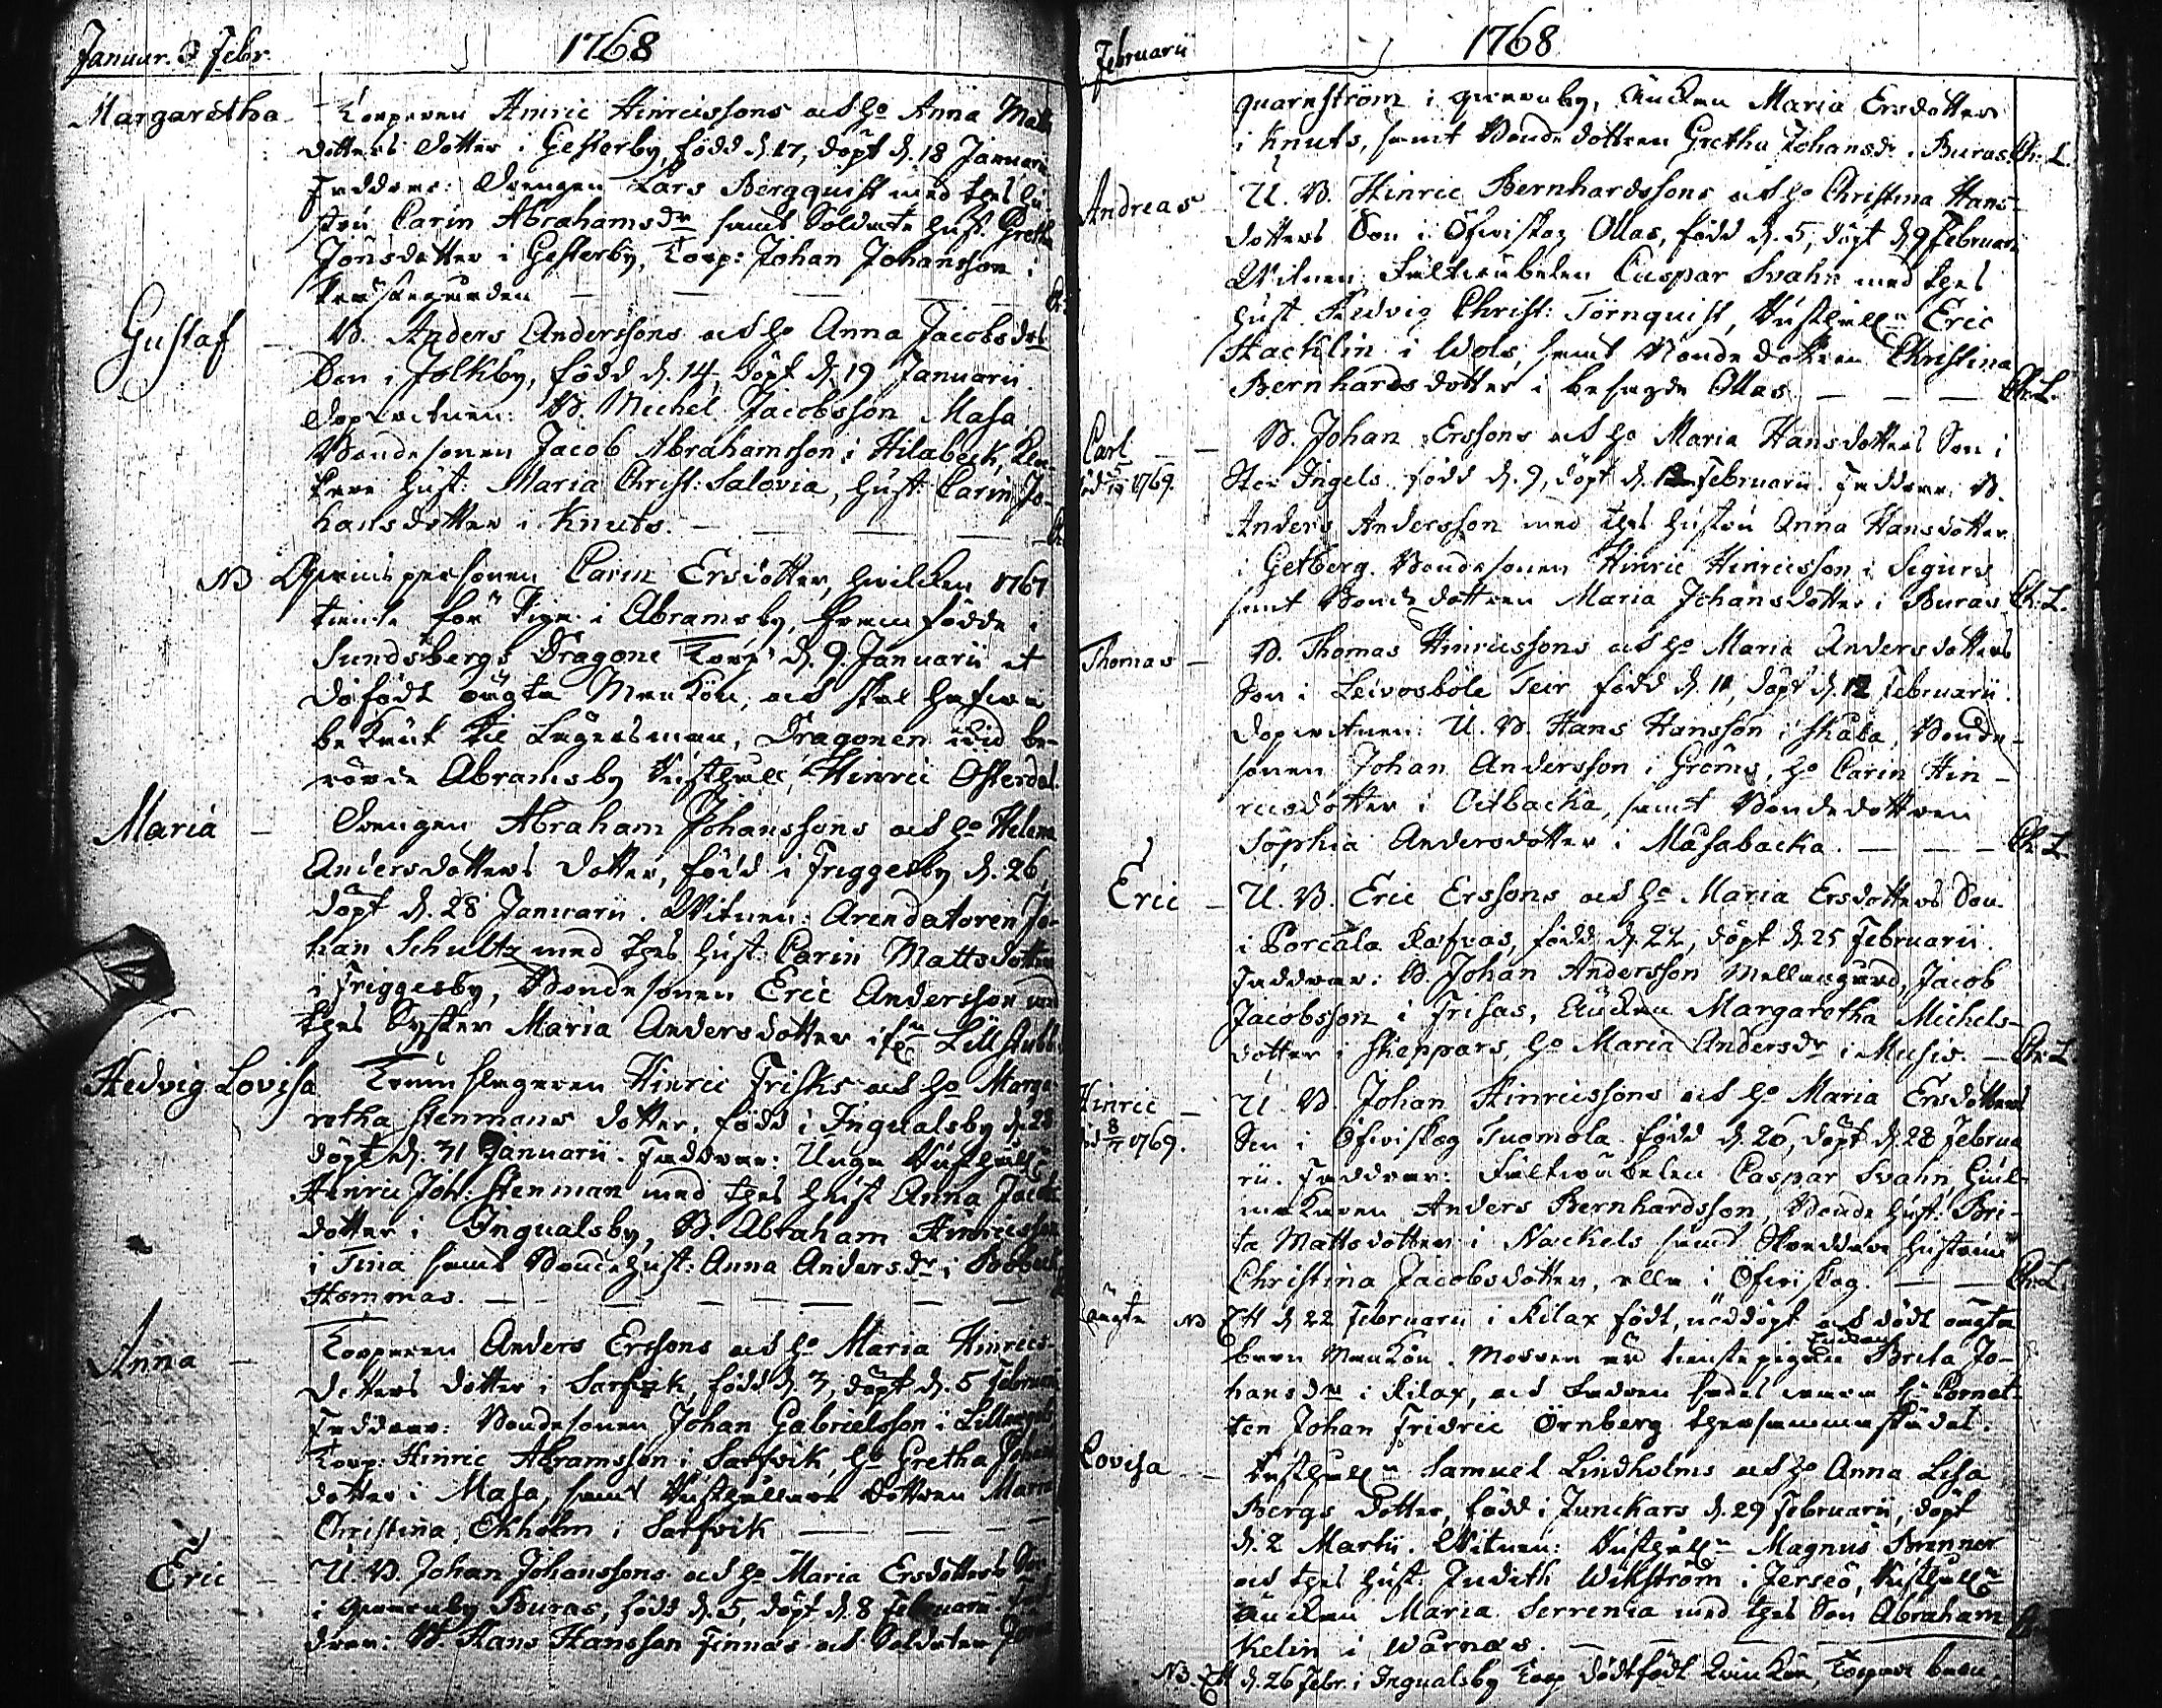 Januar. & Febr. 1768
Margaretha - Torparen Hinric Hinricssons och H:o Anna Matts
dotters dotter i Gesterby, född d. 17, döpt d. 18 Januarii
Faddrar: Drengen Lars Bergquist med thes hu
stru Carin Abrahamsd:r samt Soldate Hust. Gretha
Jönsdotter i Gesterby, Torp: Johan Johansson i
Gustaf - B. Anders Anderssons och H:o Anna Jacobsd:rs
Son i Folkby, född d. 14, döpt d. 19 Januarii.
Dopvitnen: B. Michel Jacobsson Masa,
Bondesonen Jacob Abrahamsson i Hilabeck, Klo-
kare Hust: Maria Christ: Salovia, Hust: Carin Jo-
hansdotter i Knuts.
NB Qwinspersonen Carin Ersdotter, hwilken 1767
tiente för Piga i Abramsby, framfödde i
Sundsbergs Dragone Torp d. 9. Januarii et
dödfödt oägta Mankön, och skal hafwa
bekänt til Lägersman, Dragonen wid be-
rörde Abramsby Rusthåll, Hinric Osterdal.
Maria - Drengen Abraham Johanssons och H:o Helena
Andersdotters dotter, född i Friggesby d. 26
döpt d. 28 Januarii. Witnen: Arendatoren Jo-
han Schultz med thes Hust: Carin Mattsdotter
i Friggesby, Bondesonen Eric Andersson med
thes Syster Maria Andersdotter ifrån Lillstubb
Hedvig Lovisa Trumslagaren Hinric Frisks och H:o Marga-
retha Stenmans dotter, född i Ingvalsby d. 28
döpt d. 31 Januarii. Faddrar: Unga Rusthåll:n
Henric Joh: Stenman med thes Hust Anna Jacobs
dotter i Ingvalsby, B. Abraham Hinricsson
i Tina samt Bondehust: Anna Andersd:r i Bobeck
Hommas.
Anna - Torparen Anders Erssons och H:o Maria Hinrics-
dotters dotter i Sarfvik, född d. 3, döpt d. 5 Februarii
Faddrar: Bondesonen Johan Gabrielsson i
Torp: Hinric Abramsson i Sarfvik, H:o Gretha Johans
dotter i Masa, samt Rusthållare dottren Maria
Christina Ekholm i Sarfvik
Eric - U. B. Johan Johanssons och H:o Maria Ersdotters Son
i Qvarnby Buras, född d. 5, döpt d. 8 Februarii. Fad
drar: B. Hans Hansson Finnas och Soldaten
Februarii 1768
Quarnström i Qvarnby, Änckan Maria Ersdotter
i Knuts, samt Bonde dottren Gretha Johansd:r i Buras. Ch: L.
Andreas - U. B. Hinric Bernhardssons och H:o Christina Hans-
dotters Son i Öfwiskog Ollas, född d. 5, döpt d. 9 Februarii
Witnen: Fältwäbelen Caspar Svahn med thes
Hust. Hedvig Christ: Törnquist, Rusthåll:n Eric
Stacklin i Wols, samt Bonde dottren Christina
Bernhardsdotter i besagde Ollas. Ch: L.
Carl - B. Johan Erssons och H:o Maria Hansdotters Son i
död 5/19 1769. Stor Ingels född d. 9, döpt d. 12 Februarii. Faddrar: B.
Anders Andersson med thes Hustru Anna Hansdotter
i Getberg. Bondesonen Hinric Hinricsson i Sigurs
samt Bonde dottren Maria Johansdotter i Buras Ch: L.
Thomas - B. Thomas Hinricssons och H:o Maria Andersdotters
Son i Leivosböle Teir född d. 11, döpt d. 12 Februarii.
Dopvitnen: U. B. Hans Hansson i Skata, Bonde-
sonen Johan Andersson i Gröms, H:o Carin Hin-
ricsdotter i Oitbacka, samt Bondedottren
Sophia Andersdotter i Masabacka. Ch: L.
Eric - U. B. Eric Erssons och H:o Maria Ersdotters Son
i Porcala Rafvas, född d. 22, döpt d. 25 Februarii.
Faddrar: B. Johan Andersson Mellangård, Jacob
Jacobsson i Frisas, Änckan Margaretha Michels-
dotter i Skeppars, H:o Maria Andersd:r i Musis. - Ch: L.
Hinric - U. B. Johan Hinricssons och H:o Maria Ersdotters
död 8/7 1769. Son i Öfwiskog Tuomola född d. 26, döpt d. 28 Februa
rii. Faddrar: Fältwäbelen Caspar Svahn,
Anders Bernhardsson, Bonde Hust: Bri-
ta Mattsdotter i Nackels samt Skräddare Hustrun
Christina Jacobsdotter, alla i Öfwiskog. Ch: L.
oägta NB Ett d. 22 Februarii i Kilax födt, nöddöpt och dödt oägta
barn Mankön. Modren är tienstepigan Brita Jo-
hansd:r i Kilax, och Fadren sades wara H:r Cornet-
ten Johan Fridric Örnberg thersammastädes.
Lovisa - Rusthåll:n Samuel Lindholms och H:o Anna Lisa
Bergs dotter, född i Junckars d. 29 Februarii, döpt
d. 2 Martii. Witnen: Rusthåll:n Magnus Brenner
och thes Hust: Judith Wikström i Jerseö, Rusthåll:e
Änckan Maria Serrenia med thes Son Abraham
Kelin i Wårnäs.
NB. Ett d. 26 Febr. i Ingvalsby Torp dödfödt Kwinkön, Torpare barn.